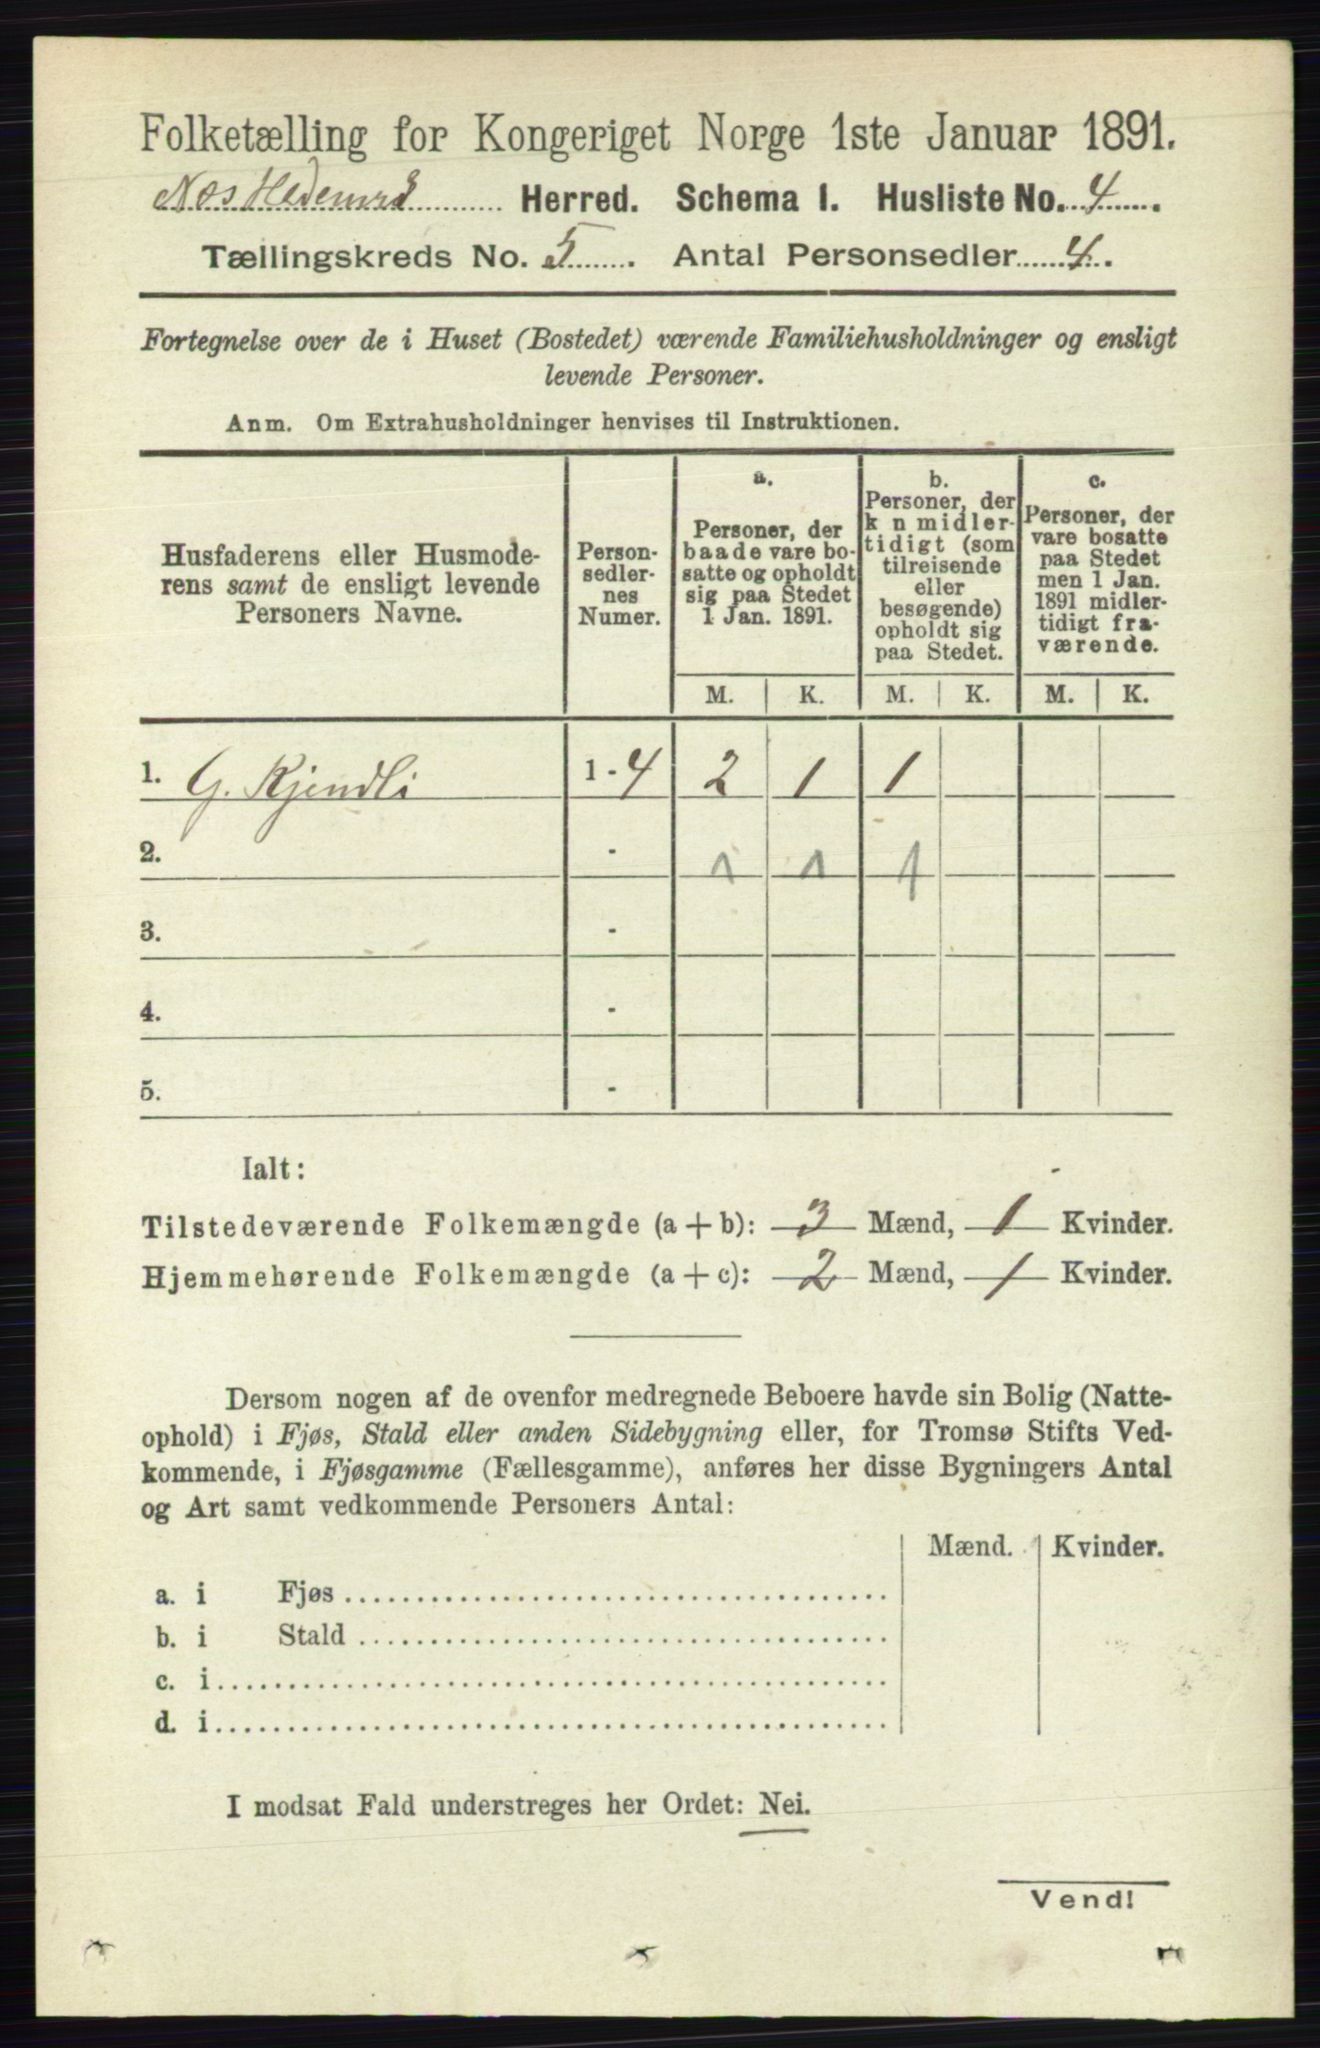 Folketælling for Kongeriget Norge 1ste Januar 1891.
Næs Hedemrk Herred. Schema 1. Husliste No. 4.
Tællingskreds No. 5. Antal Personsedler 4.
Fortegnelse over de i Huset (Bostedet) værende Familiehusholdninger og ensligt
levende Personer.
Anm. Om Extrahusholdninger henvises til Instruktionen.
Husfaderens eller Husmode-
rens samt de ensligt levende
Personers Navne.
Person-
sedler-
nes
Numer.
a.
Personer, der
baade vare bo-
satte og opholdt
sig paa Stedet
1 Jan. 1891.
b.
Personer, der
k n midler-
tidigt (som
tilreisende
eller
besøgende)
opholdt sig
paa Stedet.
c.
Personer, der
vare bosatte
paa Stedet
men 1 Jan.
1891 midler-
tidigt fra-
værende.
M. K. M. K. M. K.
1. G. Kjendli 1 - 4 2 1 1
2. - 1 1 1
3. -
4. -
5. -
Ialt:
Tilstedeværende Folkemængde (a + b): 3 Mænd, 1 Kvinder.
Hjemmehørende Folkemængde (a + c): 2 Mænd, 1 Kvinder.
Dersom nogen af de ovenfor medregnede Beboere havde sin Bolig (Natte-
ophold) i Fjøs, Stald eller anden Sidebygning eller, for Tromsø Stifts Ved-
kommende, i Fjøsgamme (Fællesgamme), anføres her disse Bygningers Antal
og Art samt vedkommende Personers Antal:
Mænd. Kvinder.
a. i Fjøs
b. i Stald
c. i
d. i
I modsat Fald understreges her Ordet: Nei.
Vend!